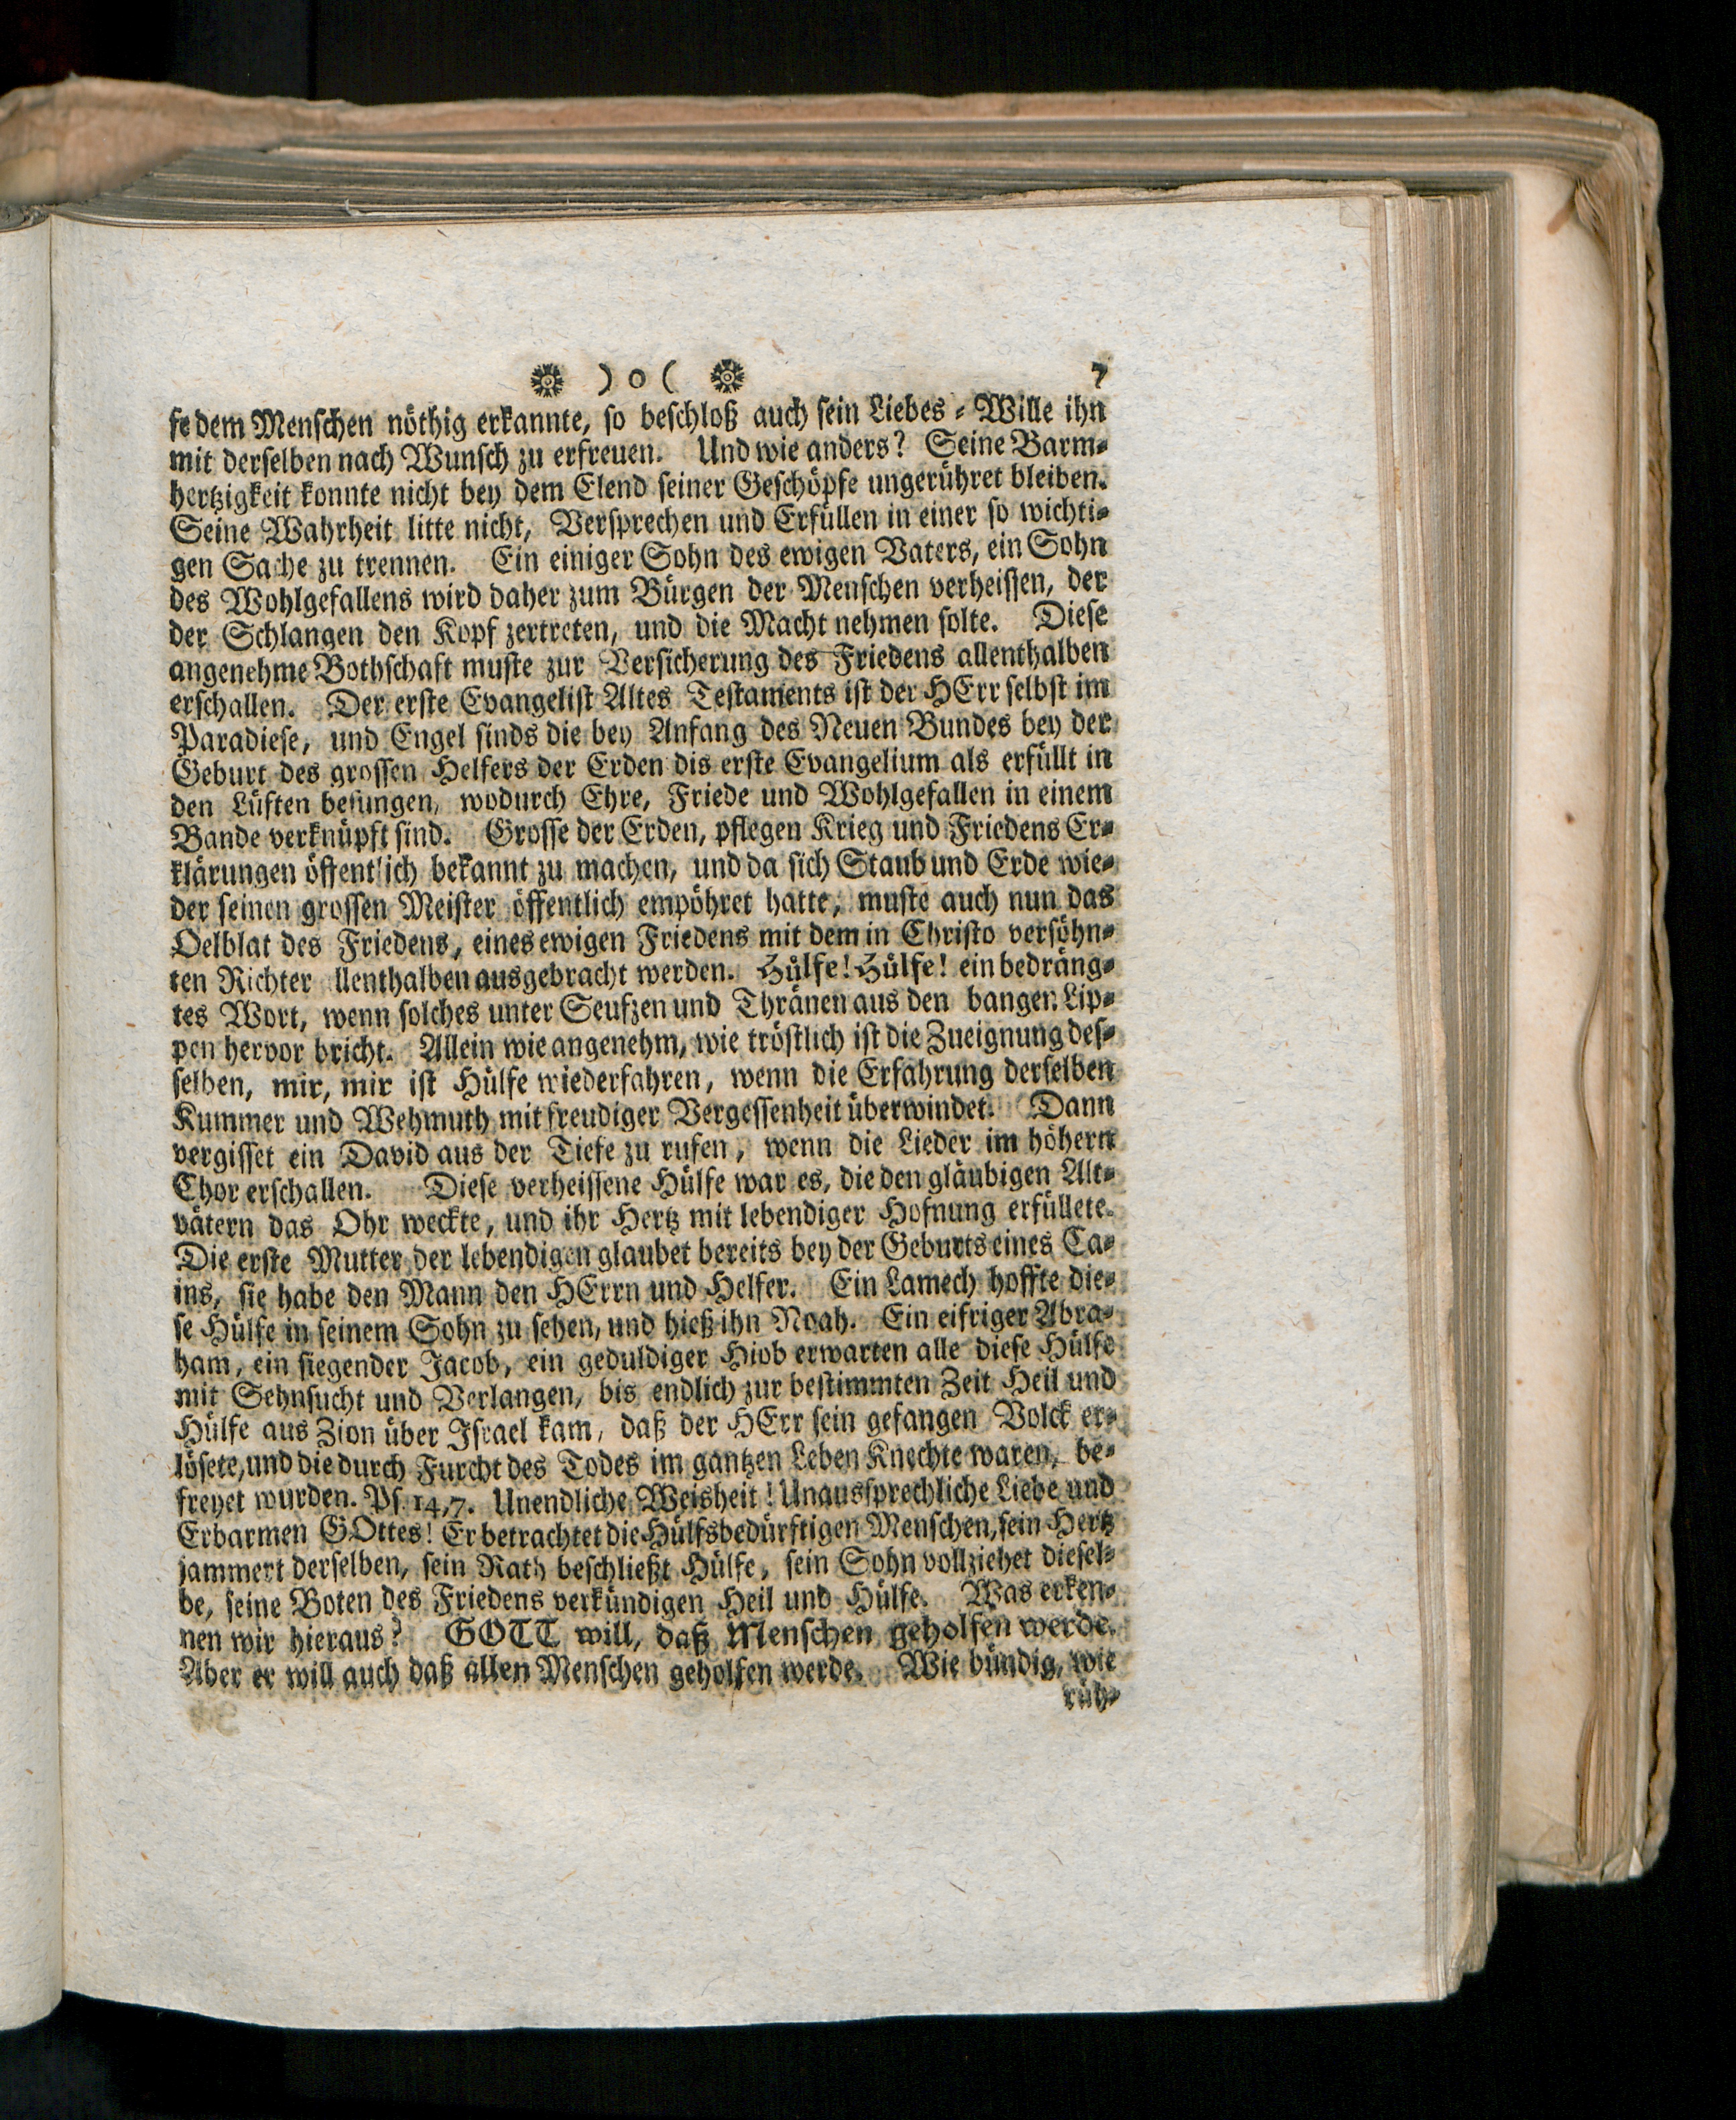 ❁ ) o ( ❁ 7
fe dem Menschen nöthig erkannte, so beschloß auch sein Liebes-Wille ihn
mit derselben nach Wunsch zu erfreuen. Und wie anders? Seine Barm-
hertzigkeit konnte nicht bey dem Elend seiner Geschöpfe ungerühret bleiben.
Seine Wahrheit litte nicht, Versprechen und Erfüllen in einer so wichti-
gen Sache zu trennen. Ein einiger Sohn des ewigen Vaters, ein Sohn
des Wohlgefallens wird daher zum Bürgen der Menschen verheissen, der
der Schlangen den Kopf zertreten, und die Macht nehmen solte. Diese
angenehme Bothschaft muste zur Versicherung des Friedens allenthalben
erschallen. Der erste Evangelist Altes Testaments ist der HErr selbst im
Paradiese, und Engel sinds die bey Anfang des Neuen Bundes bey der
Geburt des grossen Helfers der Erden dis erste Evangelium als erfüllt in
den Lüften besungen, wodurch Ehre, Friede und Wohlgefallen in einem
Bande verknüpft sind. Grosse der Erden, pflegen Krieg und Friedens Er-
klärungen öffentlich bekannt zu machen, und da sich Staub und Erde wie-
der seinen grossen Meister öffentlich empöhret hatte, muste auch nun das
Oelblat des Friedens, eines ewigen Friedens mit dem in Christo versöhn-
ten Richter llenthalben ausgebracht werden. Hülfe! Hülfe! ein bedräng-
tes Wort, wenn solches unter Seufzen und Thränen aus den bangen Lip-
pen hervor bricht. Allein wie angenehm, wie tröstlich ist die Zueignung des-
selben, mir, mir ist Hülfe wiederfahren, wenn die Erfahrung derselben
Kummer und Wehmuth mit freudiger Vergessenheit überwindet. Dann
vergisset ein David aus der Tiefe zu rufen, wenn die Lieder im höhern
Chor erschallen. Diese verheissene Hülfe war es, die den gläubigen Alt-
vätern das Ohr weckte, und ihr Hertz mit lebendiger Hofnung erfüllete.
Die erste Mutter der lebendigen glaubet bereits bey der Geburts eines Ca-
ins, sie habe den Mann den HErrn und Helfer. Ein Lamech hoffte die-
se Hülfe in seinem Sohn zu sehen, und hieß ihn Noah. Ein eifriger Abra-
ham, ein siegender Jacob, ein geduldiger Hiob erwarten alle diese Hülfe
mit Sehnsucht und Verlangen, bis endlich zur bestimmten Zeit Heil und
Hülfe aus Zion über Israel kam, daß der HErr sein gefangen Volck er-
lösete, und die durch Furcht des Todes im gantzen Leben Knechte waren, be-
freyet wurden. Ps. 14,7. Unendliche Weisheit! Unaussprechliche Liebe und
Erbarmen GOttes! Er betrachtet die Hülfsbedürftigen Menschen, sein Hertz
jammert derselben, sein Rath beschließt Hülfe, sein Sohn vollziehet diesel-
be, seine Boten des Friedens verkündigen Heil und Hülfe. Was erken-
nen wir hieraus? GOTT will, daß Menschen geholfen werde.
Aber er will auch daß allen Menschen geholfen werde. Wie bündig, wie
rüh-